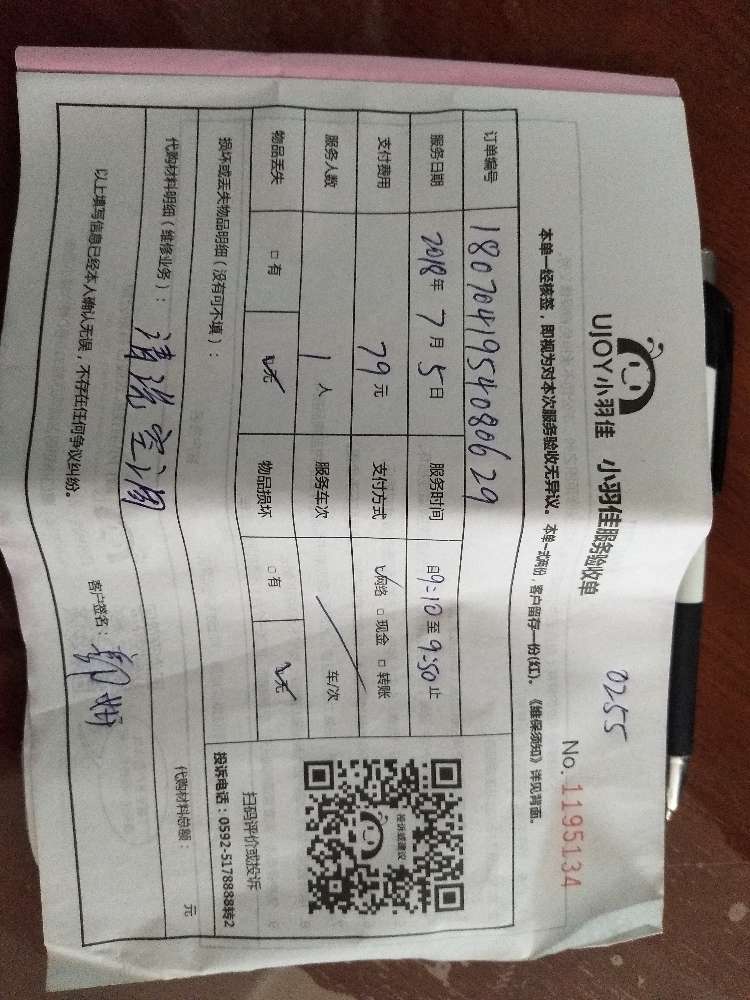 0255
UJOY小羽佳 小羽佳服务验收单
No. 1195134
本单一经核签，即视为对本次服务验收无异议。本单一式两份，客户留存一份(红)。《维保须知》详见背面。
订单编号 1807041954080629
服务日期 2018年7月5日 服务时间 自9:10至9:50止
支付费用 79元 支付方式 ☑网络 □现金 □转账
服务人数 1人 服务车次 / 车/次
物品丢失 □有 ☑无 物品损坏 □有 ☑无
投诉或建议
扫码评价或投诉
投诉电话：0592-5178888转2
损坏或丢失物品明细（没有可不填）：
代购材料明细（维修业务）： 清洗空调 代购材料总额： 元
以上填写信息已经本人确认无误，不存在任何争议纠纷。 客户签名：